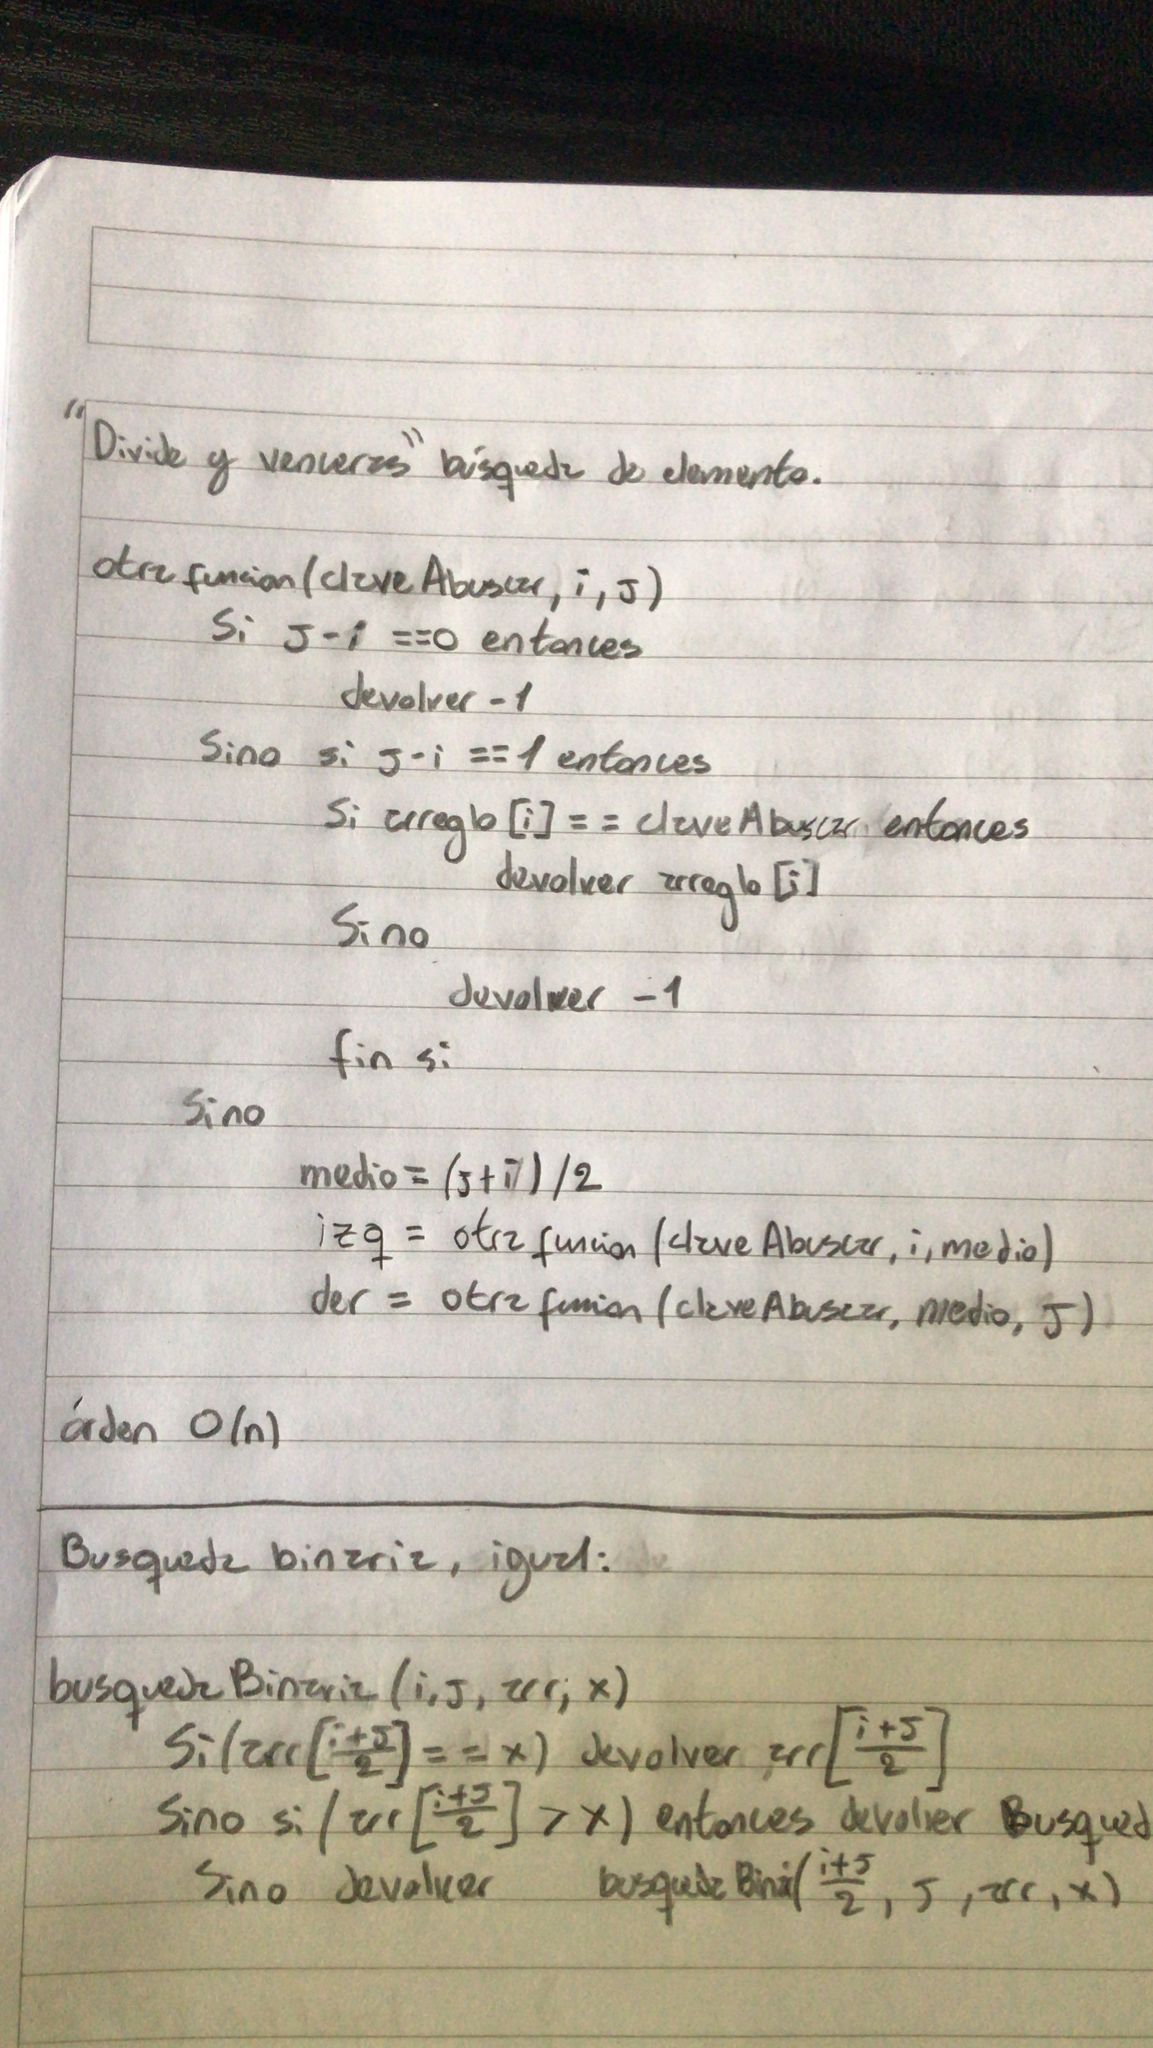 "Divide y venceras" búsqueda de elemento.
otra funcion (clave Abuscar, i, J)
Si J-i ==0 entonces
devolver -1
Sino si J-i ==1 entonces
Si arreglo [i] == clave Abuscar entonces
devolver arreglo [i]
Sino
devolver -1
fin si
Sino
medio = (J+i)/2
izq = otra funcion (clave Abuscar, i, medio)
der = otra funcion (clave Abuscar, medio, J)
órden O(n)
Busqueda binaria, igual:
busqueda Binaria (i, J, arr, x)
Si (arr[(i+J)/2] == x) devolver arr[(i+J)/2]
Sino si (arr[(i+J)/2] > x) entonces devolver Busqued
Sino devolver busqueda Bina((i+J)/2, J, arr, x)